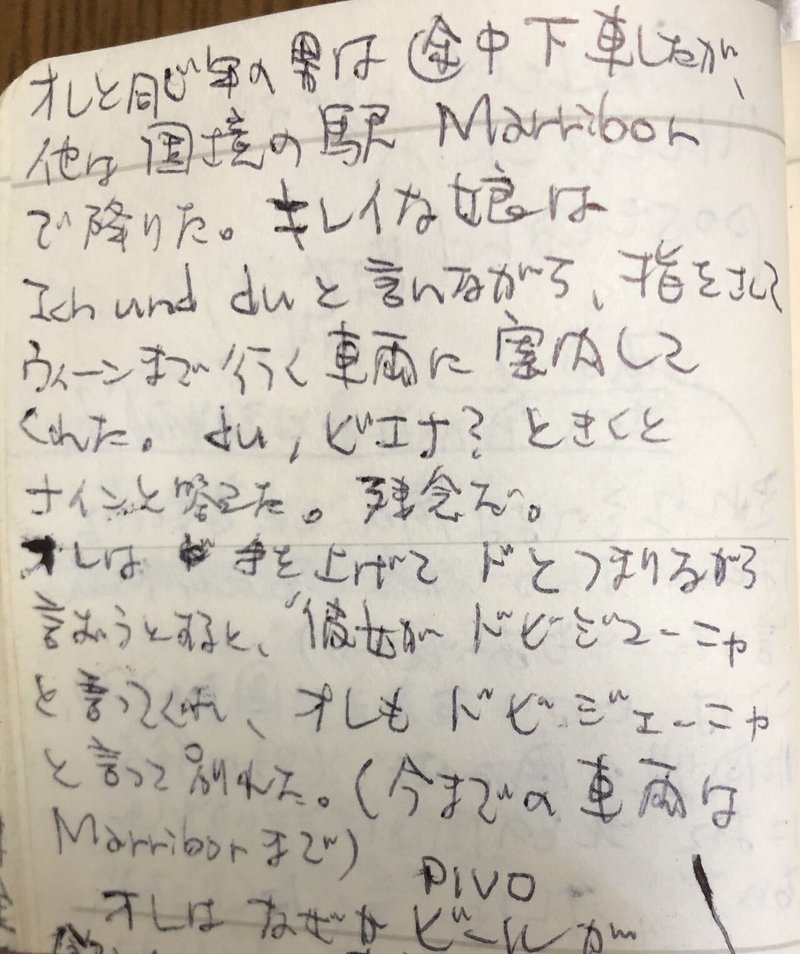 オレと同じ年の男は途中下車したが、
他は国境の駅 Marribor
で降りた。キレイな娘は
Ich und du と言いながら、指をさして
ウィーンまで行く車両に案内して
くれた。du, ビエナ? ときくと
ナインと答えた。残念だ。
オレは手を上げて ドとつまりながら
言おうとすると、彼女がドビジェーニャ
と言ってくれ、オレもドビジェーニャ
と言って別れた。(今までの車両は
Marriborまで)
PIVO
オレはなぜかビールが